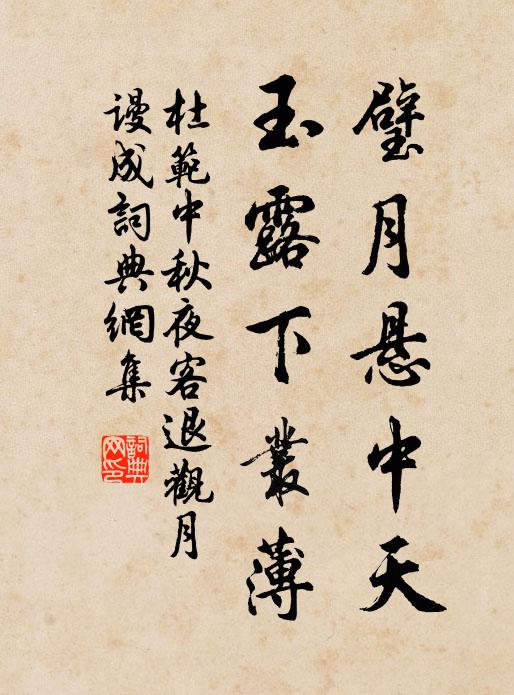 璧月悬中天
玉露下叢薄
杜範中秋夜客退觀月
謾成詞典網集
詞典
网印